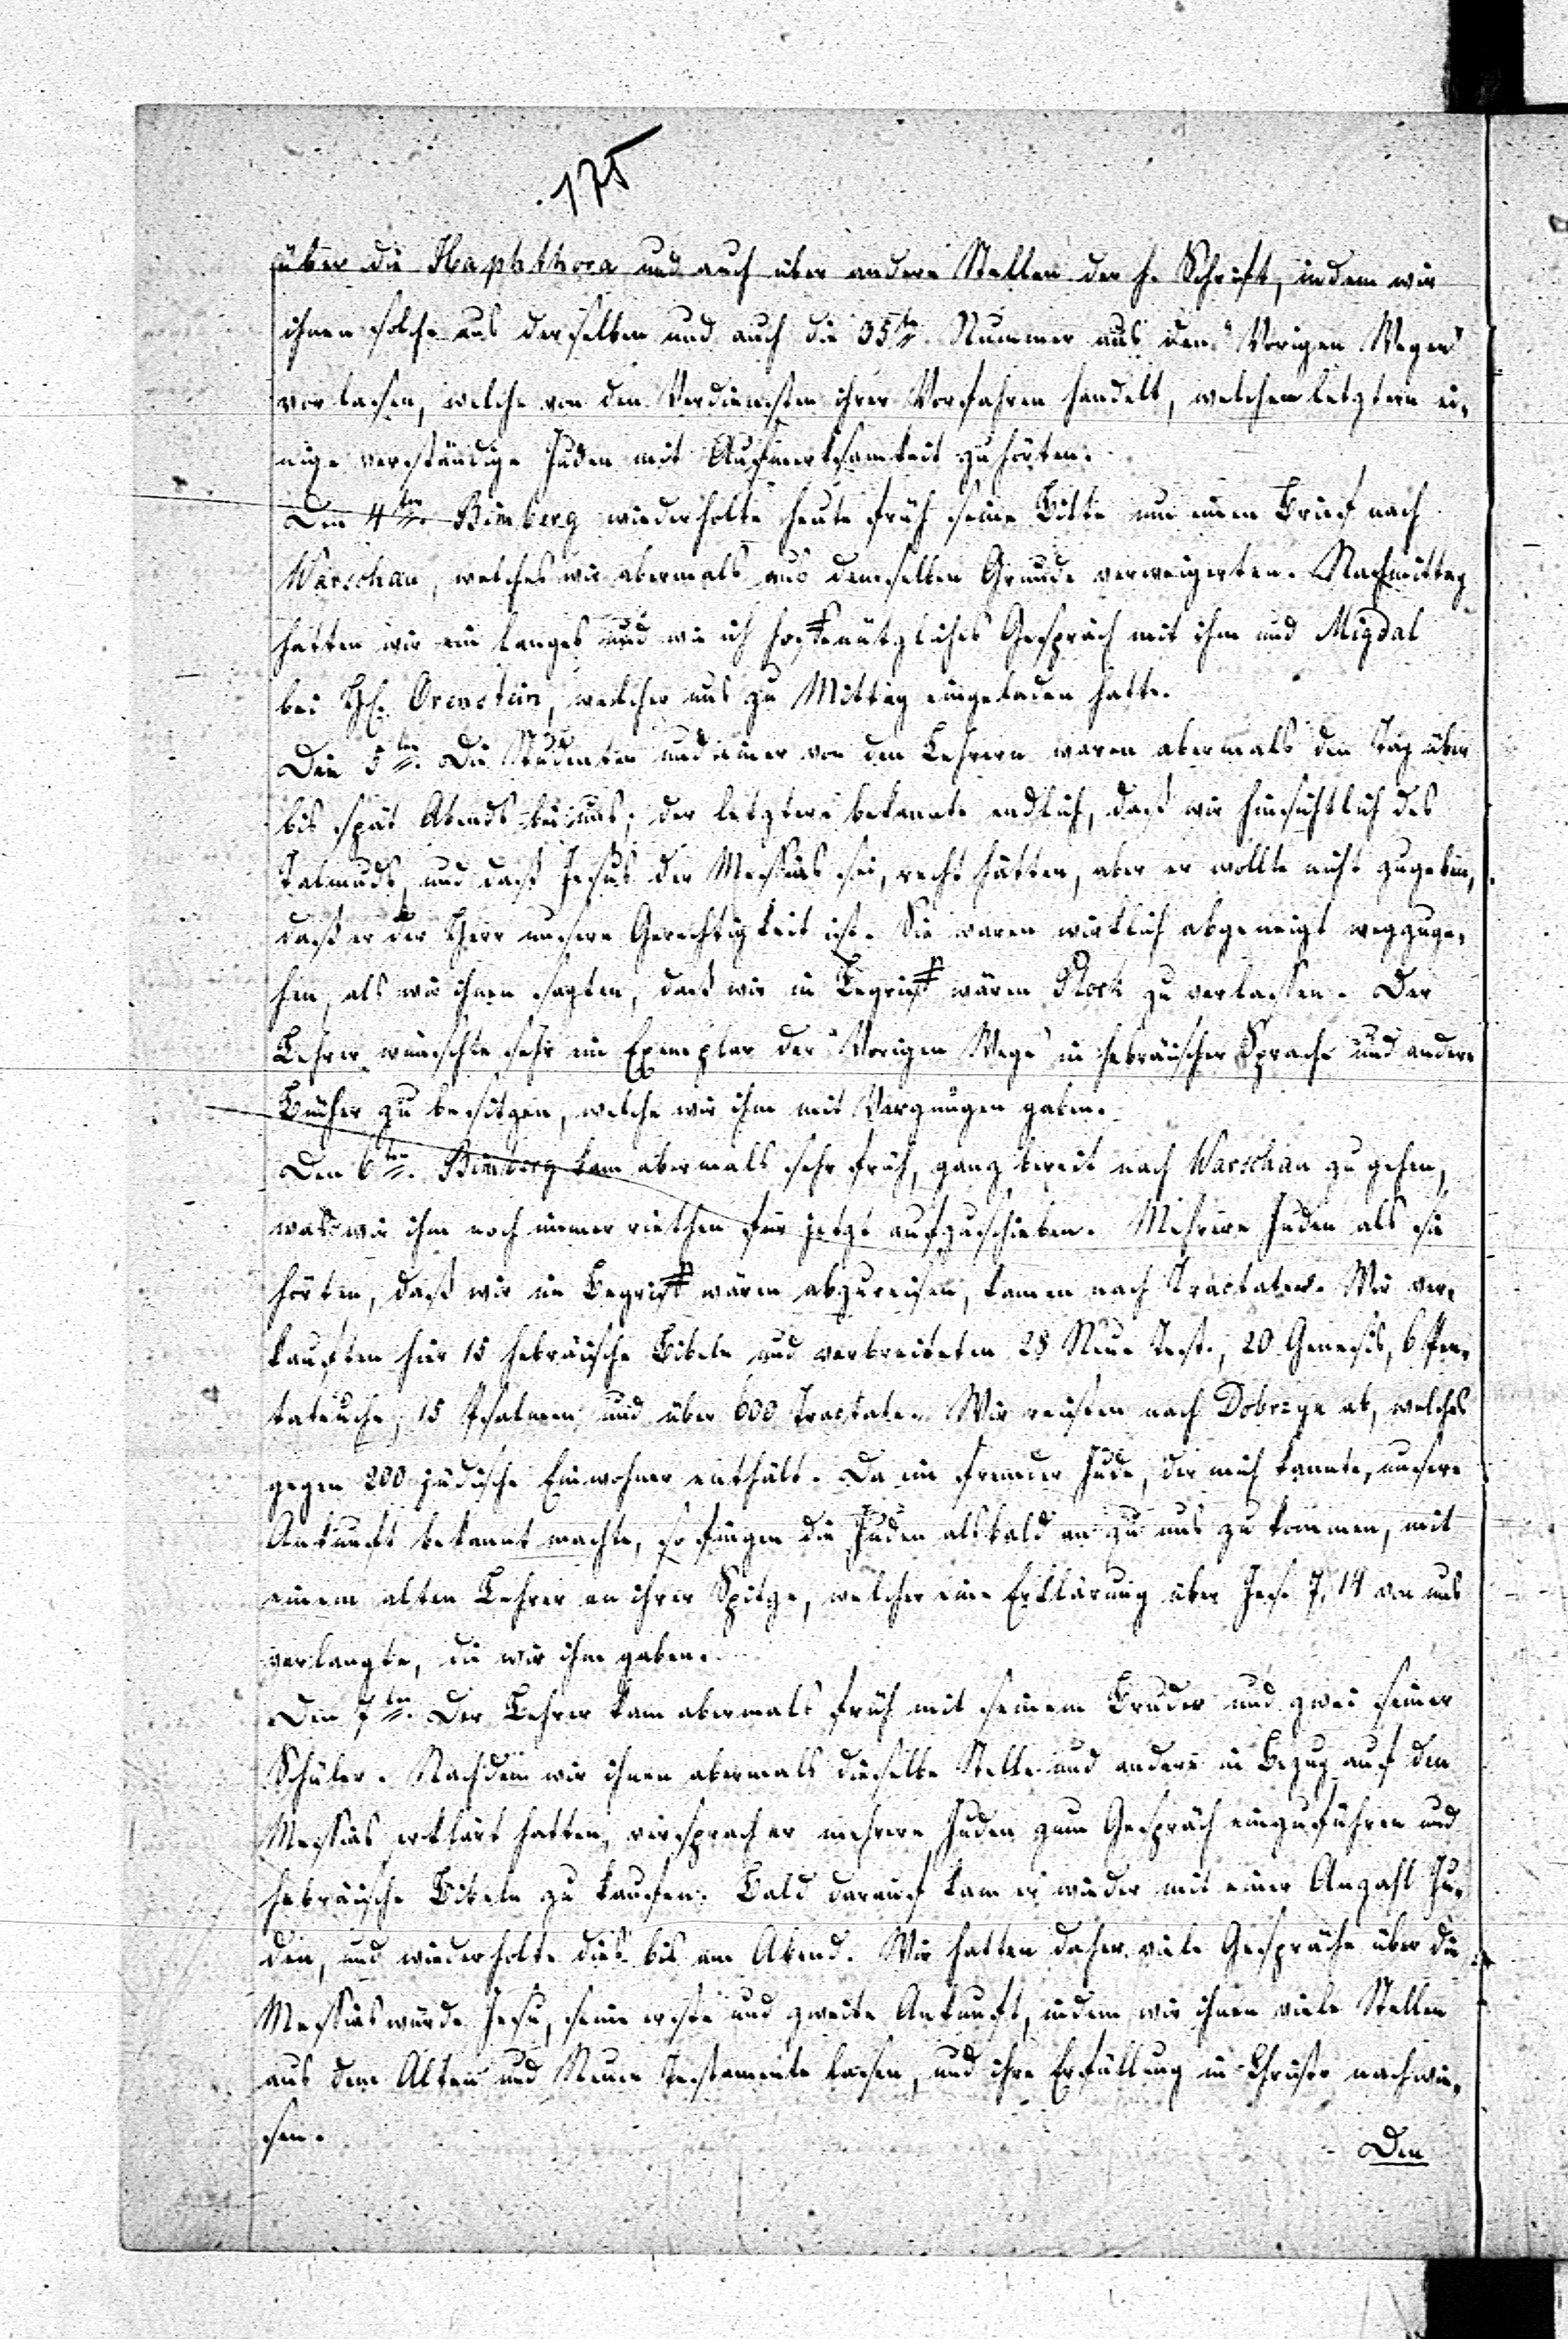 175
über die Haphthora und auch über andere Stellen der h. Schrift, indem wir
ihnen solche aus derselben und auch die 35te Nummer aus den "Vorigen Wegen"
vorlasen, welche von den Verdiensten ihrer Vorfahren handelt, welchem letztern ei-
nige verständige Juden mit Aufmerksamkeit zuhörten.
Den 4ten. Bimberg wiederholte heute früh seine Bitte um einen Brief nach
Warschau, welches wir abermals aus demselben Grunde verweigerten. Nachmittag
hatten wir ein langes und wie ich hoffe nützliches Gespräch mit ihm und Migdal
bei H. Orenstein, welcher uns zu Mittag eingeladen hatte.
Den 5ten. Die Studenten und einer von den Lehrern waren abermals den Tag über
bis spät Abends bei uns; der letztere bekannte endlich, daß wir hinsichtlich des
Talmuds, und daß Jesus der Messias sei, recht hätten, aber er wollte nicht zugeben,
daß er der Herr unsere Gerechtigkeit ist. Sie waren wirklich abgeneigt wegzuge-
hen, als wir ihnen sagten, daß wir in Begriff wären Plock zu verlassen. Der
Lehrer wünschte sehr ein Exemplar der "Vorigen Wege" in hebräischer Sprache und andere
Bücher zu besitzen, welche wir ihm mit Vergnügen gaben.
Den 6ten. Bimberg kam abermals sehr früh, ganz bereit nach Warschau zu gehen,
was wir ihm noch immer riethen für jetzt aufzuschieben. Mehrere Juden als sie
hörten, daß wir im Begriff wären abzureisen, kamen nach Tractaten. Wir ver-
kauften hier 15 hebräische Bibeln und verbreiteten 28 Neue Test., 20 Genesis, 6 Pen-
tateuche, 15 Psalmen und über 600 Tractate. Wir reisten nach Dobrzyn ab, welches
gegen 200 jüdische Einwohner enthält. Da ein fremder Jude, der mich kannte, unsere
Ankunft bekannt machte, so fingen die Juden alsbald an zu uns zu kommen, mit
einem alten Lehrer an ihrer Spitze, welcher eine Erklärung über Jes. 7, 14 von uns
verlangte, die wir ihm gaben.
Den 7ten. Der Lehrer kam abermals früh mit seinem Bruder und zwei seiner
Schüler. Nachdem wir ihnen abermals dieselbe Stelle und andere in Bezug auf den
Messias erklärt hatten, versprach er mehrere Juden zum Gespräch einzuführen und
hebräische Bibeln zu kaufen. Bald darauf kam er wieder mit einer Anzahl Ju-
den, und wiederholte dies bis am Abend. Wir hatten daher viele Gespräche über die
Messiaswürde Jesu, seine erste und zweite Ankunft, indem wir ihnen viele Stellen
aus dem Alten und Neuen Testamente lasen, und ihre Erfüllung in Christo nachwie-
sen.
Den